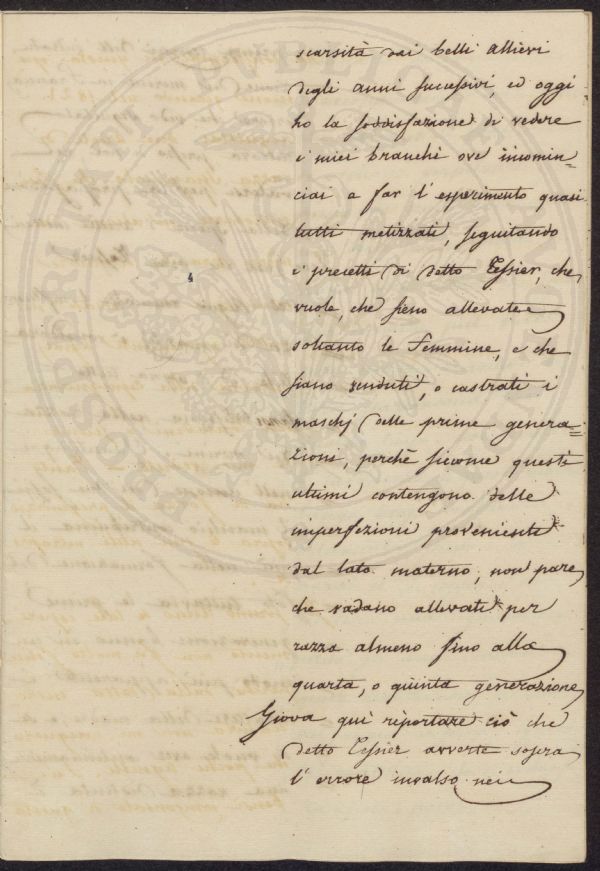 scarsità dai belli Allievi
degli anni successivi, ed oggi
ho la soddisfazione di vedere
i miei branchi ove incomin=
ciai a far l'esperimento quasi
tutti metizzati, seguitando
i precetti di detto Tessier, che
vuole, che sieno allevate
soltanto le Femmine, e che
siano venduti, o castrati i
maschj delle prime genera=
zioni, perchè siccome questi
ultimi contengono delle
imperfezioni proveniente
dal lato materno, non pare
che vadano allevati per
razza almeno fino alla
quarta, o quinta generazione
Giova quì riportare ciò che
detto Tessier avverte sopra
l'errore invalso nei